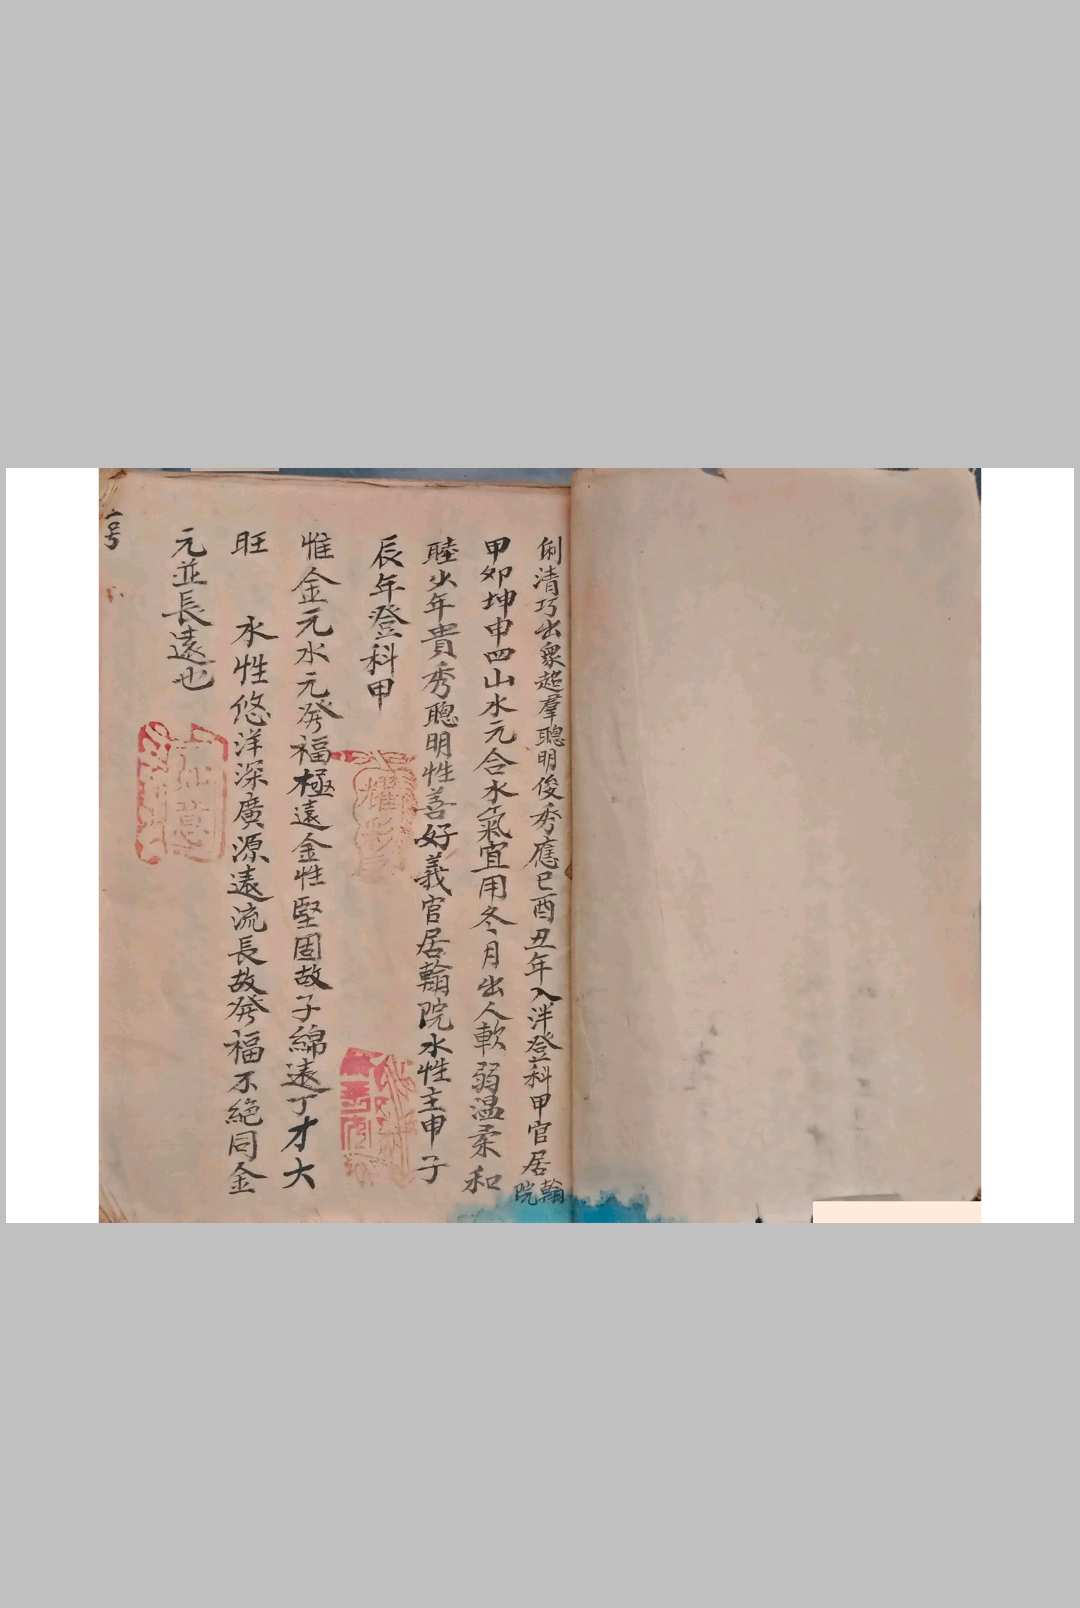 俐清巧出衆超羣聰明俊秀應巳酉丑年入泮登科甲官居翰院
甲卯坤申四山水元合水氣宜用冬月出人軟弱温柔和
睦少年貴秀聰明性善好義官居翰院水性主申子
辰年登科甲
惟金元水元發福極遠金性堅固故子綿遠丁才大
旺 水性悠洋深廣源遠流長故發福不絶同金
元並長遠也
号